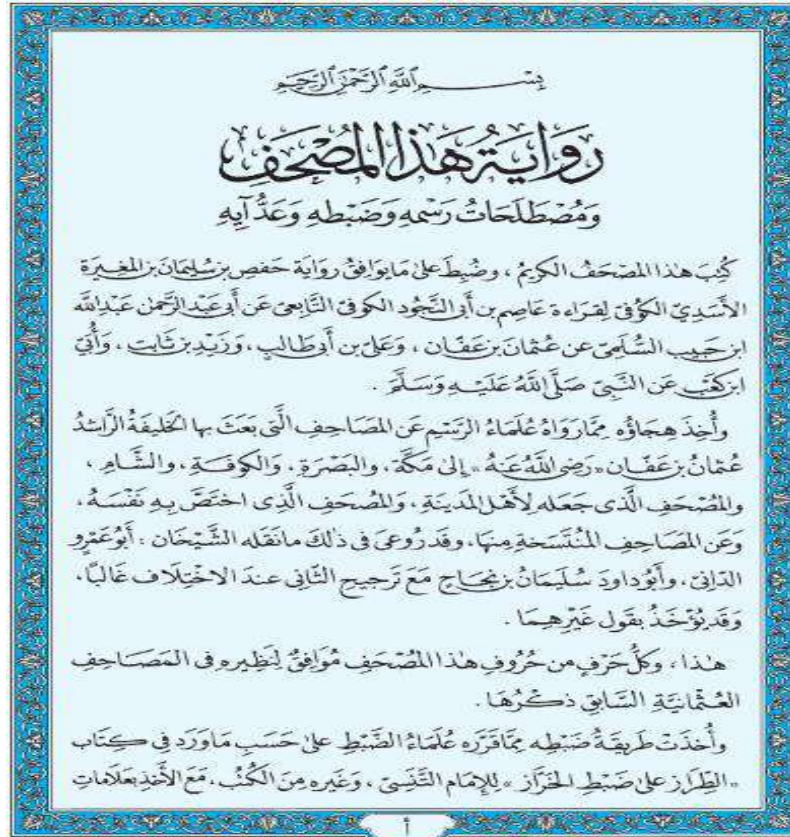 بِسْمِ ٱللَّهِ ٱلرَّحْمَٰنِ ٱلرَّحِيمِ
رِوَايَةُ هَذَا المُصْحَفِ
وَمُصْطَلَحَاتُ رَسْمِهِ وَضَبْطِهِ وَعَدِّ آيِهِ
كُتِبَ هَٰذَا المُصْحَفُ الكَرِيمُ ، وضُبِطَ عَلىٰ مَا يُوَافِقُ رِوَايَةَ حَفْصِ بنِ سُلَيمَانَ بنِ المُغِيرَةِ
الأَسَدِيِّ الكُوفِيِّ لِقِرَاءَةِ عَاصِمِ بنِ أَبِى النَّجُودِ الكُوفِىِّ التَّابِعىِّ عَن أَبِى عَبْدِ الرَّحْمٰنِ عَبْدِ اللَّهِ
ابنِ حَبِيبٍ السُّلَمِىِّ عَن عُثْمَانَ بنِ عَفَّانَ ، وَعَلِىِّ بنِ أَبِى طَالِبٍ ، وَزَيْدِ بنِ ثَابِتٍ ، وَأُبَىِّ
ابنِ كَعْبٍ عَنِ النَّبِىِّ صَلَّى اللَّهُ عَلَيْهِ وَسَلَّمَ .
وأُخِذَ هِجَاؤُه مِمَّا رَوَاهُ عُلَمَاءُ الرَّسْمِ عَنِ المَصَاحِفِ الَّتِى بَعَثَ بِهَا الخَلِيفَةُ الرَّاشِدُ
عُثْمَانُ بنُ عَفَّان «رَضِىَ اللَّهُ عَنهُ» إِلىٰ مَكَّةَ ، والبَصْرَةِ ، وَالكُوفَةِ ، والشَّامِ ،
والمُصْحَفِ الَّذى جَعَلَه لِأَهْلِ المَدِينَةِ ، وَالمُصْحَفِ الَّذِى اختَصَّ بِهِ نَفْسَهُ ،
وَعَنِ المَصَاحِفِ المُنْتَسَخَةِ مِنهَا ، وقَد رُوعىَ فى ذٰلكَ مَا نَقَلَه الشَّيْخَانِ : أَبُو عَمْرٍو
الدَّانِىّ ، وأَبُو دَاودَ سُلَيمَانُ بنُ نَجَاحٍ مَعَ تَرجِيحِ الثَّانِى عندَ الاخْتِلَاف غَالبًا ،
وَقَد يُؤخَذُ بقَول غَيْرِهِمَا .
هٰذا ، وكلُّ حَرْفٍ من حُرُوفِ هٰذا المُصْحَفِ مُوَافِقٌ لِنَظِيرِه فى المَصَاحِفِ
العُثْمَانِيَّةِ السَّابِقِ ذِكْرُهَا .
وأُخِذَتْ طَرِيقَةُ ضَبْطِه مِمَّا قَرَّرَه عُلَمَاءُ الضَّبْطِ علىٰ حَسَبِ مَا وَرَدَ فى كِتَابِ
«الطِّرَازِ علىٰ ضَبْطِ الخَرَّازِ» لِلإِمَام التَّنَسِىّ ، وَغَيرِه مِنَ الكُتُبِ ، مَعَ الأَخذِ بعَلَامَاتِ
أ